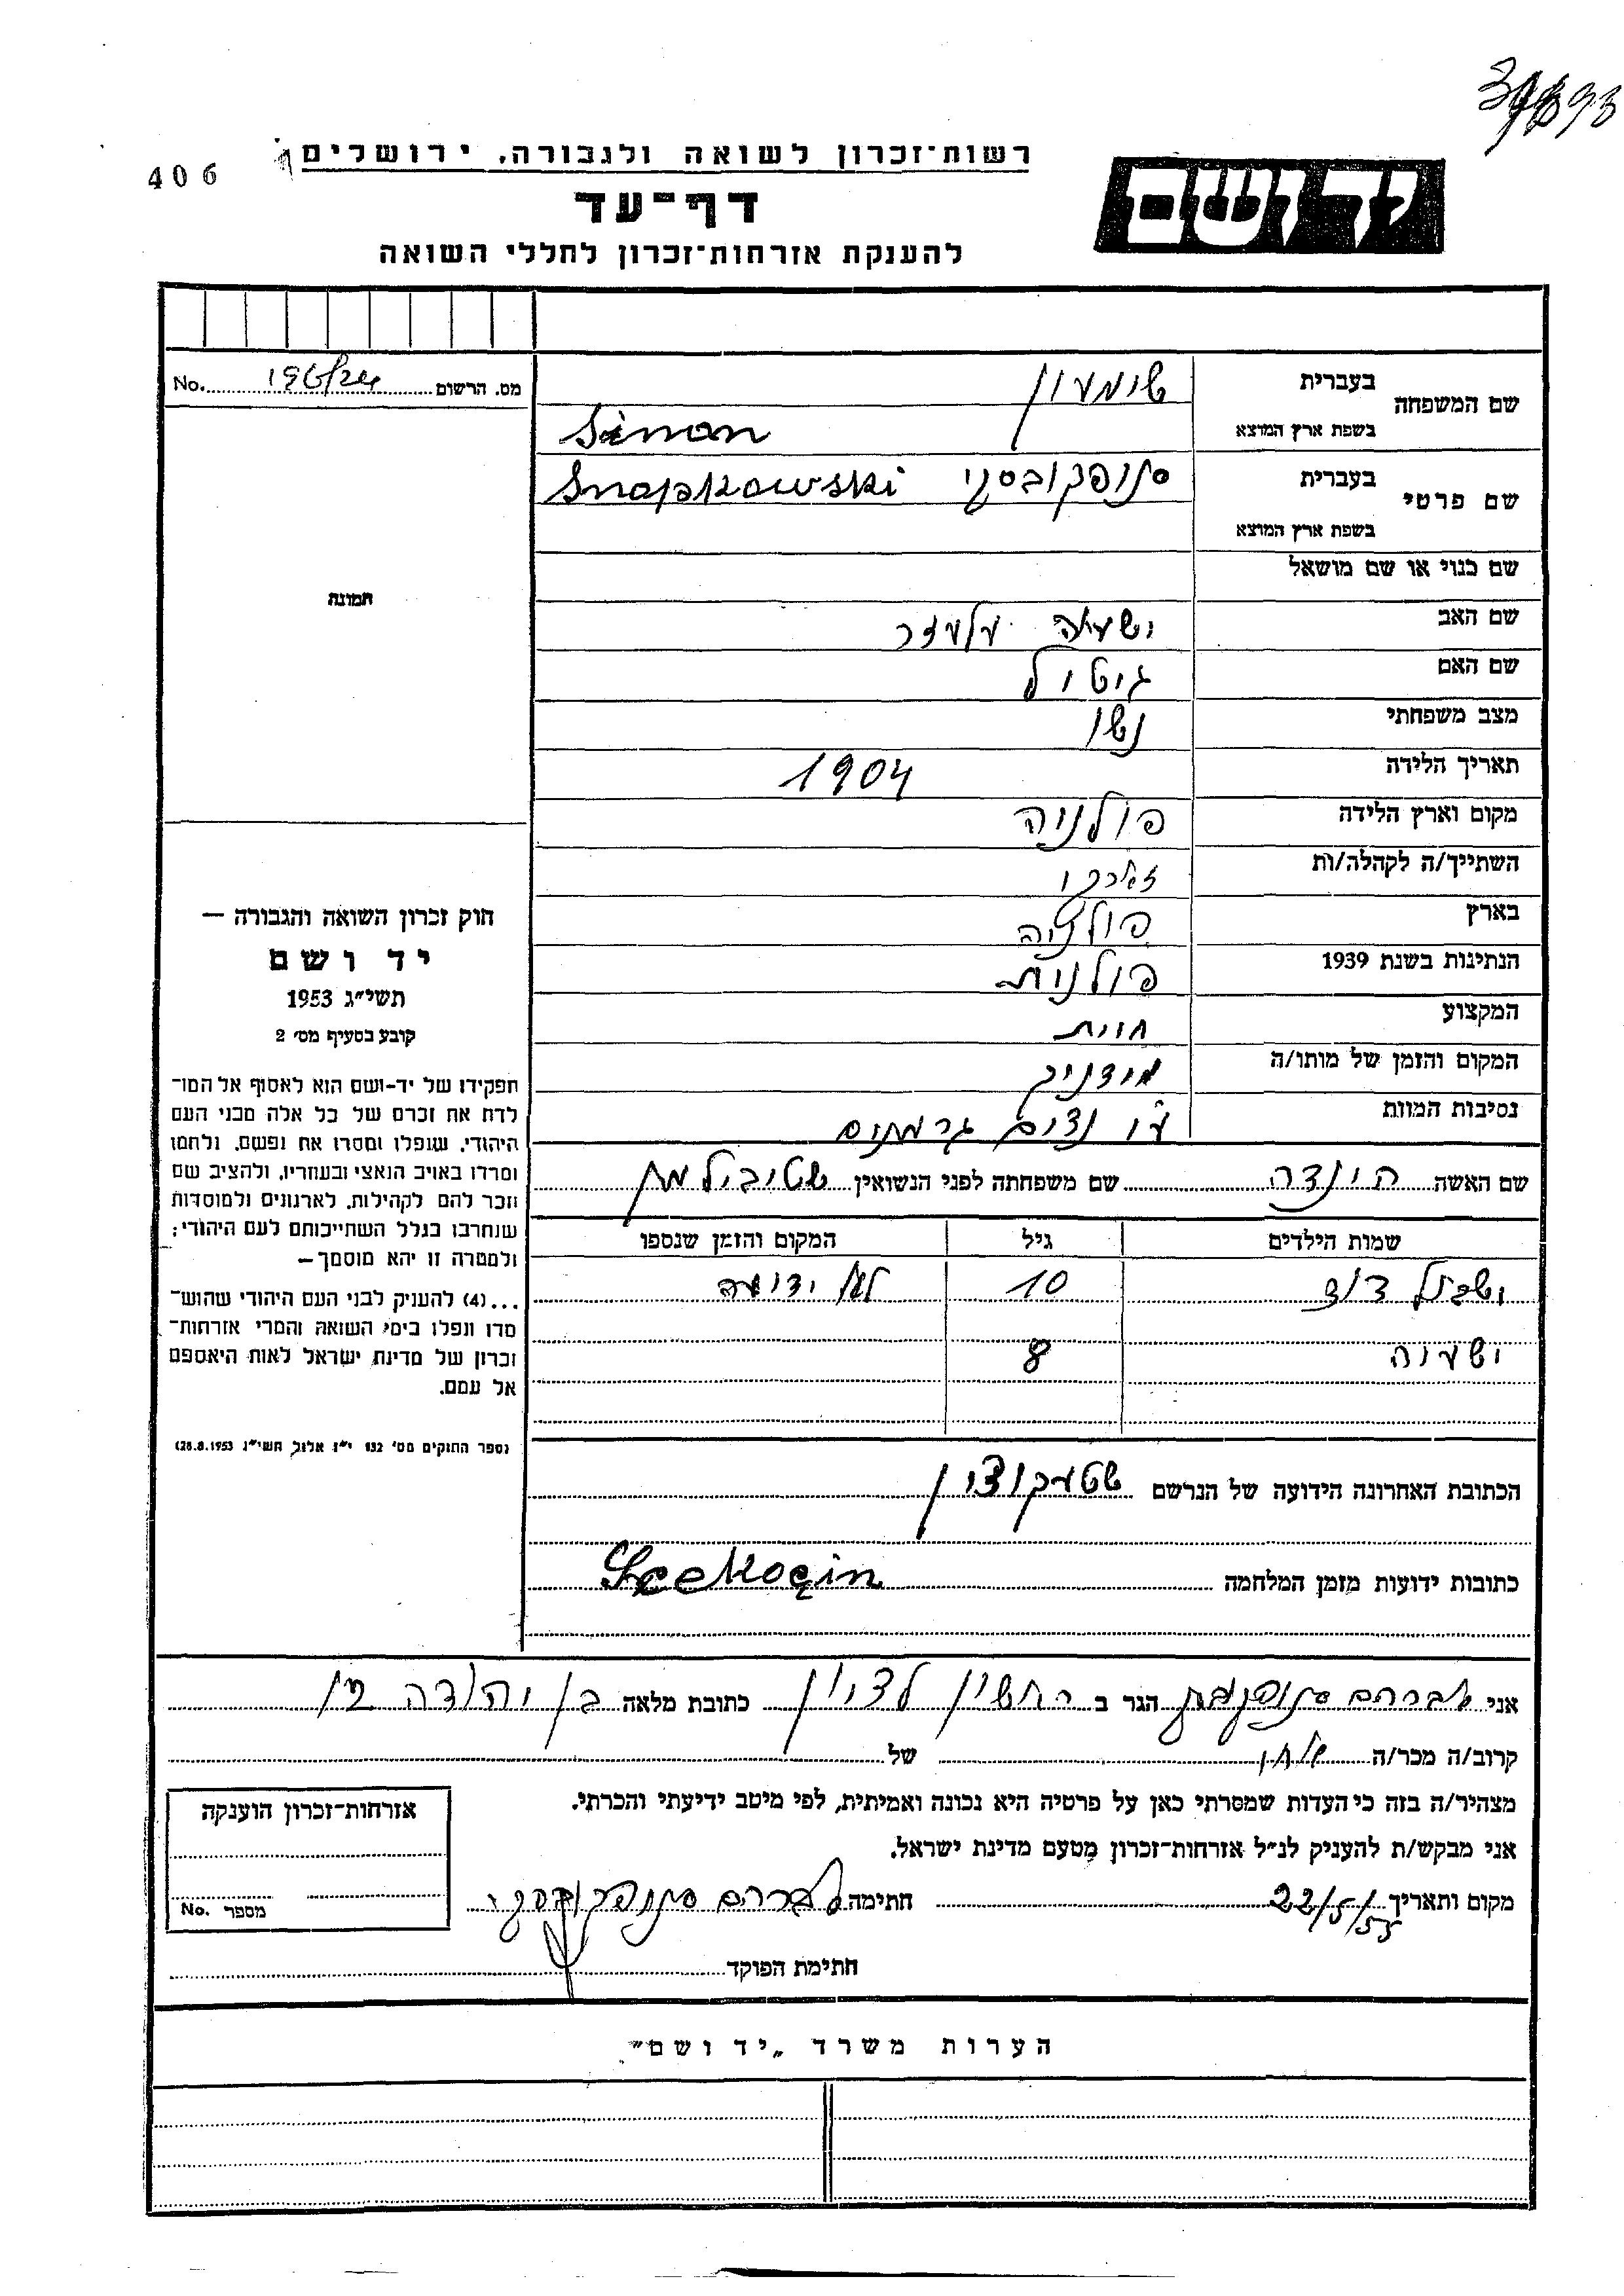 406
רשות־זכרון לשואה ולגבורה, ירושלים
יד ושם
דף־עד
להענקת אזרחות־זכרון לחללי השואה
מס. הרשום No.
שם המשפחה
בעברית שימעון
בשפת ארץ המוצא Simon
שם פרטי
בעברית סנופקובסקי Snopkowski
בשפת ארץ המוצא
שם כנוי או שם מושאל
תמונה
שם האב ישעיה אלעזר
שם האם גיטל
מצב משפחתי נשוי
תאריך הלידה 1904
מקום וארץ הלידה פולניה
השתייך/ה לקהלה/ות
בארץ פולניה
הנתינות בשנת 1939 פולנית
המקצוע חייט
המקום והזמן של מותו/ה
נסיבות המוות ע"י נצים גרמנים
חוק זכרון השואה והגבורה —
יד ושם
תשי"ג 1953
קובע בסעיף מס' 2
תפקידו של יד-ושם הוא לאסוף אל המו־
לדת את זכרם של כל אלה מבני העם
היהודי, שנפלו ומסרו את נפשם, נלחמו
ומרדו באויב הנאצי ובעוזריו, ולהציב שם
וזכר להם לקהילות, לארגונים ולמוסדות
שנחרבו בגלל השתייכותם לעם היהודי;
ולמטרה זו יהא מוסמך—
...(4) להעניק לבני העם היהודי שהוש־
מדו ונפלו בימי השואה והמרי אזרחות־
זכרון של מדינת ישראל לאות היאספם
אל עמם.
(ספר החוקים מס' 132 י"ז אלול תשי"ג 28.8.1953)
שם האשה הינדה שם משפחתה לפני הנשואין
שמות הילדים גיל המקום והזמן שנספו
דוד 10 לא ידועה
ישעיה 8
הכתובת האחרונה הידועה של הנרשם
כתובות ידועות מזמן המלחמה
אני אברהם סנופקובסקי הגר ב ראשון לציון כתובת מלאה בן יהודה
קרוב/ה מכר/ה של
מצהיר/ה בזה כי העדות שמסרתי כאן על פרטיה היא נכונה ואמיתית, לפי מיטב ידיעתי והכרתי.
אני מבקש/ת להעניק לנ"ל אזרחות־זכרון מטעם מדינת ישראל.
מקום ותאריך 22/5/55 חתימה אברהם סנופקובסקי
חתימת הפוקד
אזרחות־זכרון הוענקה
מספר No.
הערות משרד „יד ושם"